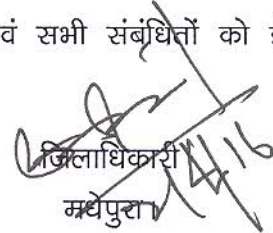 वं सभी संबंधितों को
जिलाधिकारी
मधेपुरा।